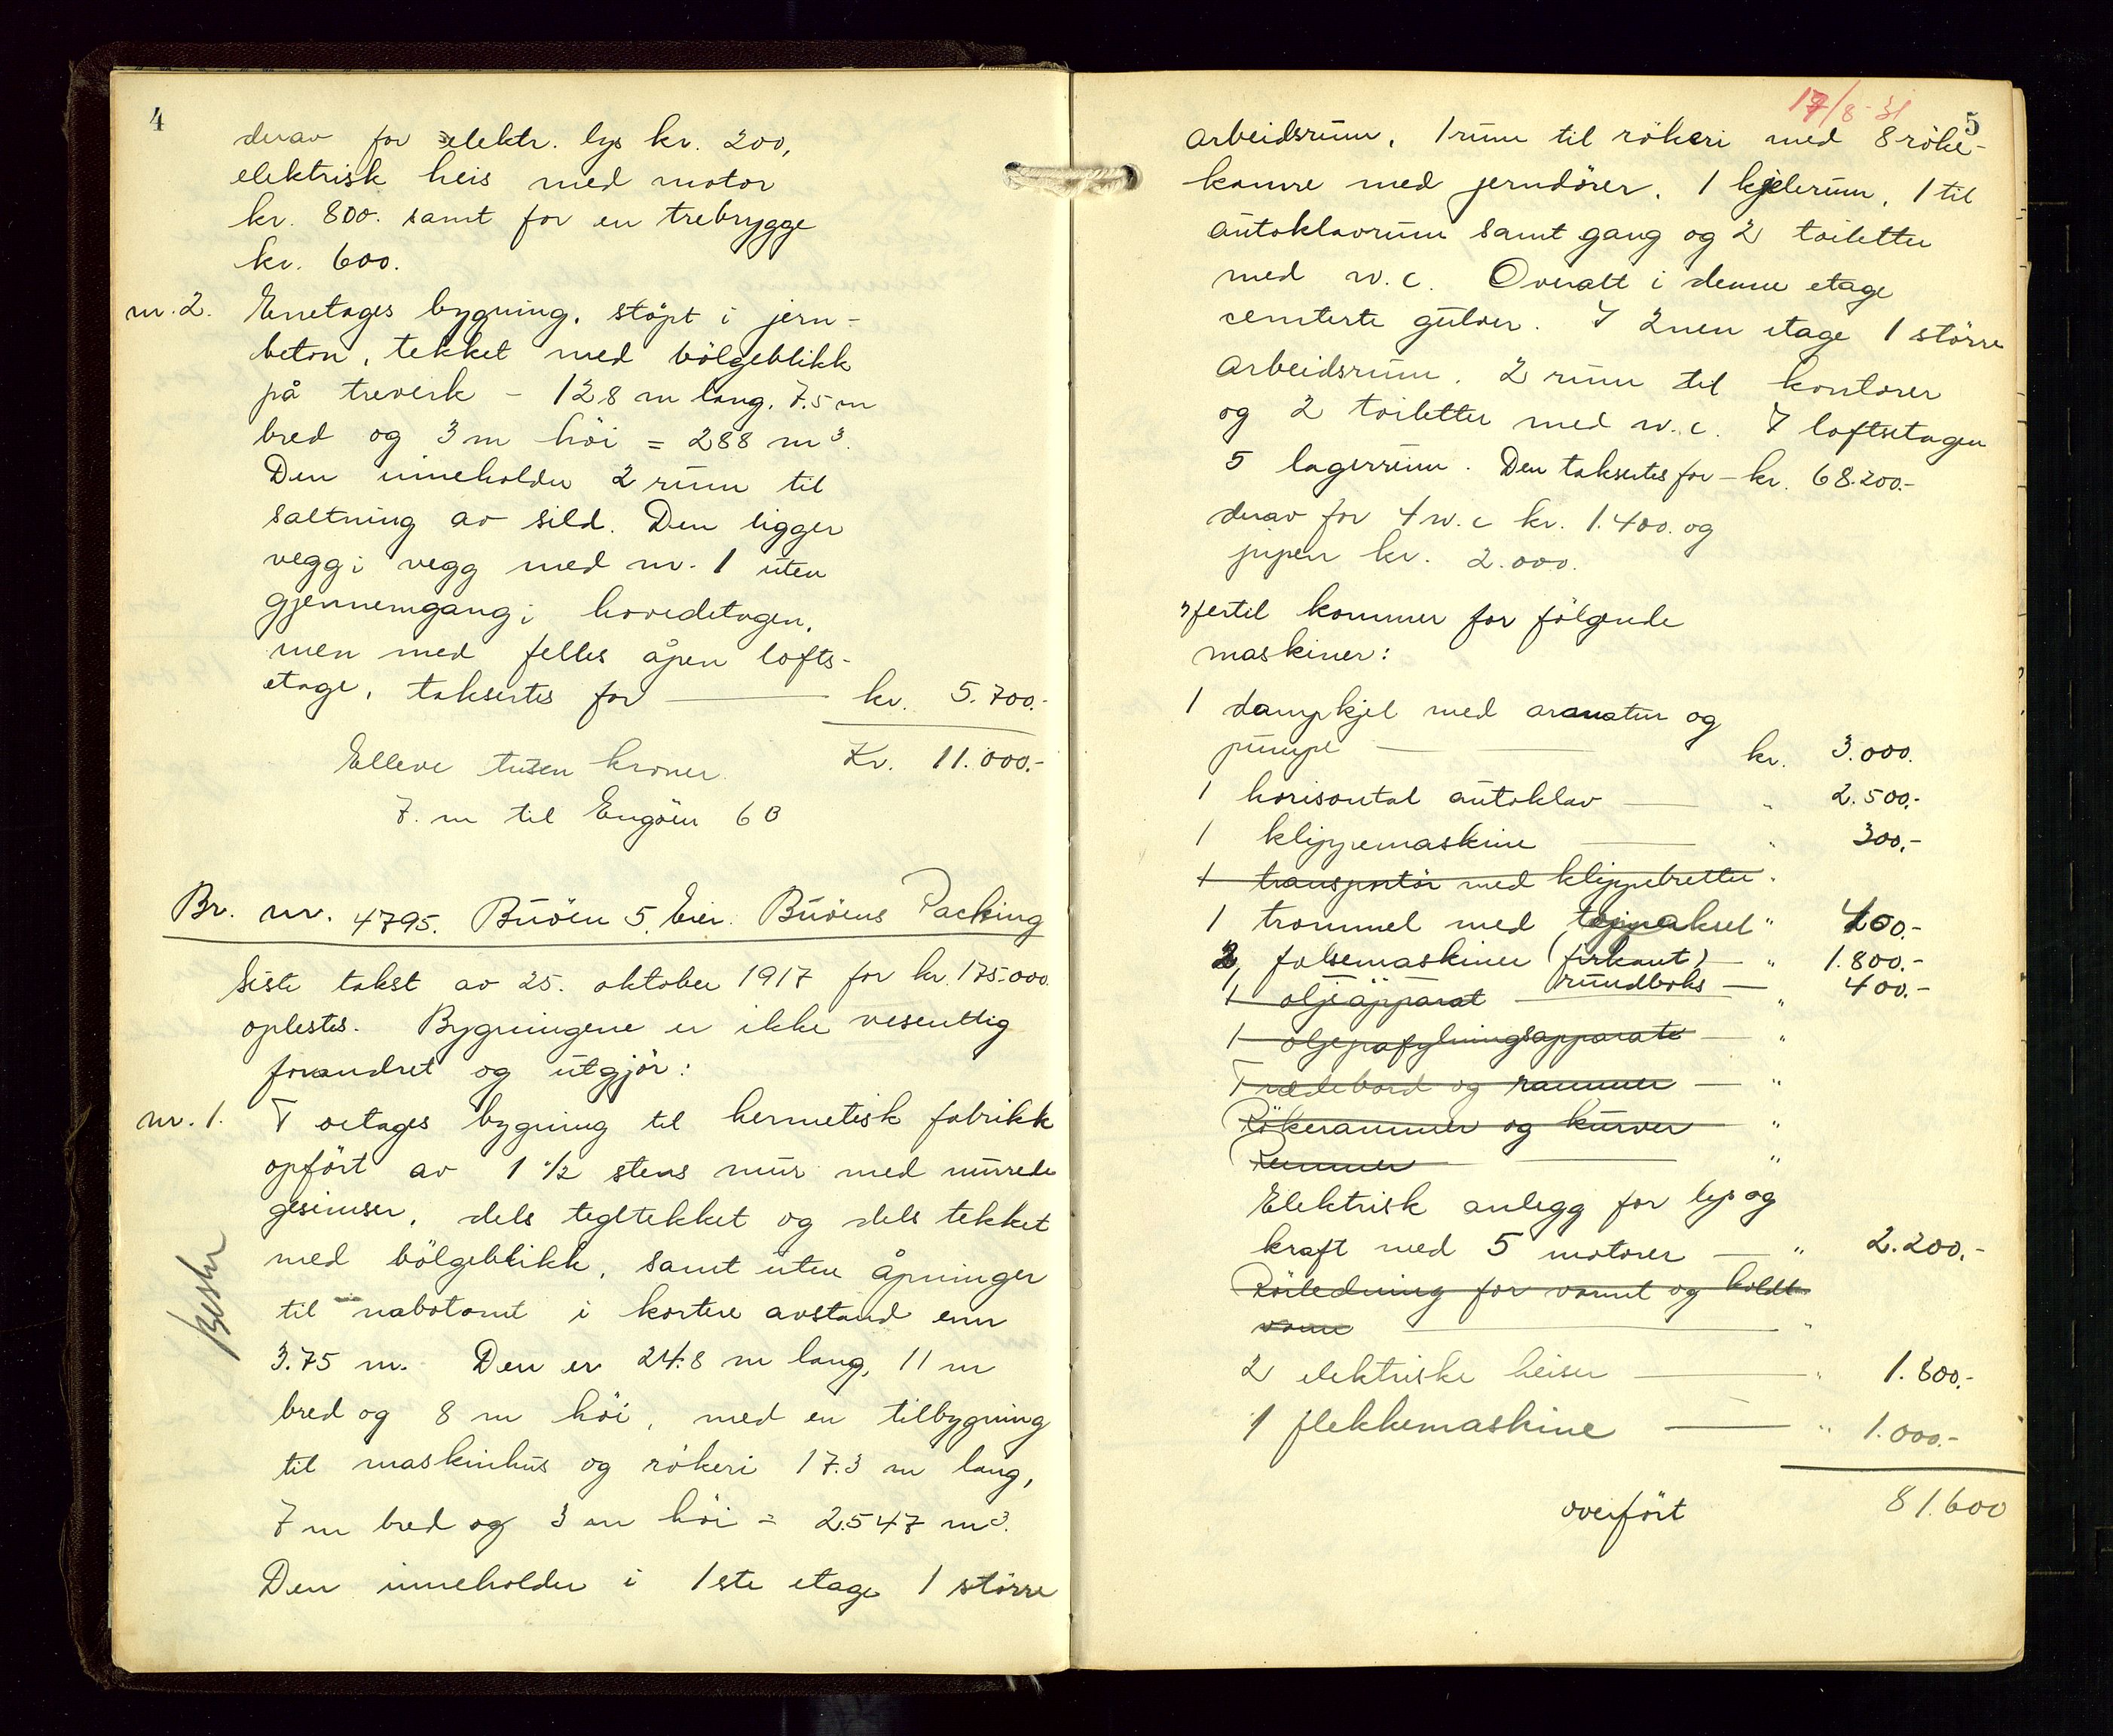 4
derav for elektr. lys kr. 200,
elektrisk heis med motor
kr. 800. samt for en trebrygge
kr. 600.
nr. 2. Enetages bygning, støpt i jern-
beton, tekket med bölgeblikk
på treverk - 12.8 m lang, 7.5 m
bred og 3 m höi = 288 m³.
Den inneholder 2 rum til
saltning av sild. Den ligger
vegg i vegg med nr. 1 uten
gjennemgang i hovedetagen,
men med felles åpen lofts-
etage, takseres for — kr. 5.700.-
Kr. 11.000.-
Elleve tusen kroner.
7. m til Engöen 6 B
Br. nr. 4795. Buöen 5. Eier. Buöens Packing
Siste takst av 25. oktober 1917 for kr. 175.000
oplestes. Bygningene er ikke vesentlig
forandret og utgjör:
nr. 1. Toetages bygning til hermetisk fabrikk
opfört av 1 1/2 stens mur med murede
gesimser, dels tegltekket og dels tekket
med bölgeblikk, samt uten åpninger
til nabotomt i kortere avstand enn
3.75 m. Den er 24.8 m lang, 11 m
bred og 8 m höi, med en tilbygning
til maskinhus og rökeri 17.3 m lang,
7 m bred og 3 m höi = 2.547 m³.
Den inneholder i 1ste etage 1 större
17/8-31
5
arbeidsrum, 1 rum til rökeri med 8 röke-
kamre med jerndörer, 1 kjelerum, 1 til
autoklavrum samt gang og 2 toiletter
med w.c. Overalt i denne etage
cemterte gulver. I 2nen etage 1 större
arbeidsrum, 2 rum til kontorer
og 2 toiletter med w.c. I loftsetagen
5 lagerrum. Den takseres for - kr. 68.200.-
derav for 4 w.c kr. 1.400. og
pipen kr. 2.000.
Hertil kommer for fölgende
maskiner:
1 dampkjel med armatur og
pumpe — kr. 3.000.
1 horisontal autoklav — " 2.500.-
1 klippemaskine — " 300.-
1 transportör med klippebretter "
1 trommel med " 400.-
2 falsemaskiner (firkant) — " 1.800.-
1 rundboks — 400.-
1 oljeapparat — "
1 oljepafylningsapparate — "
Trædebord og rammer — "
Rökerammer og kurver — "
Remmer — "
Elektrisk anlegg for lys og
kraft med 5 motorer — " 2.200.-
Rörledning for varmt og koldt
vann — "
2 elektriske heiser — " 1.800.-
1 flekkemaskine — " 1.000.-
overfört 81.600